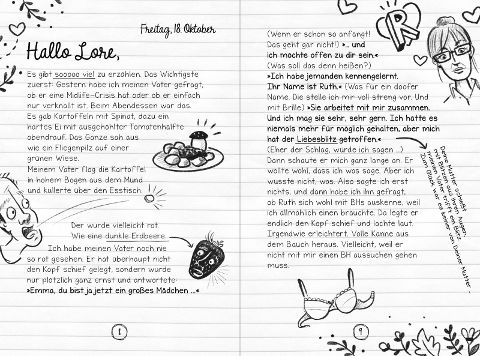 Freitag, 18. Oktober
Hallo Lore,
Es gibt sooooo viel zu erzählen. Das Wichtigste
zuerst: Gestern habe ich meinen Vater gefragt,
ob er eine Midlife-Crisis hat oder ob er einfach
nur verknallt ist. Beim Abendessen war das.
Es gab Kartoffeln mit Spinat, dazu ein
hartes Ei mit ausgehöhlter Tomatenhälfte
obendrauf. Das Ganze sah aus
wie ein Fliegenpilz auf einer
grünen Wiese.
Meinem Vater flog die Kartoffel
in hohem Bogen aus dem Mund
und kullerte über den Esstisch.
Der wurde vielleicht rot.
Wie eine dunkle Erdbeere.
Ich habe meinen Vater noch nie
so rot gesehen. Er hat überhaupt nicht
den Kopf schief gelegt, sondern wurde
nur plötzlich ganz ernst und antwortete:
»Emma, du bist ja jetzt ein großes Mädchen ...«
8
(Wenn er schon so anfängt!
Das geht gar nicht!) »... und
ich möchte offen zu dir sein.«
(Was soll das denn heißen?)
»Ich habe jemanden kennengelernt.
Ihr Name ist Ruth.« (Was für ein doofer
Name. Die stelle ich mir voll streng vor. Und
mit Brille.) »Sie arbeitet mit mir zusammen.
Und ich mag sie sehr, sehr gern. Ich hätte es
niemals mehr für möglich gehalten, aber mich
hat der Liebesblitz getroffen.«
(Eher der Schlag, würde ich sagen ...)
Dann schaute er mich ganz lange an. Er
wollte wohl, dass ich was sage. Aber ich
wusste nicht, was. Also sagte ich erst
nichts, und dann habe ich ihn gefragt,
ob Ruth sich wohl mit BHs auskenne, weil
ich allmählich einen bräuchte. Da legte er
endlich den Kopf schief und lachte laut.
Irgendwie erleichtert. Volle Kanne aus
dem Bauch heraus. Vielleicht, weil er
nicht mit mir einen BH aussuchen gehen
muss.
R
9